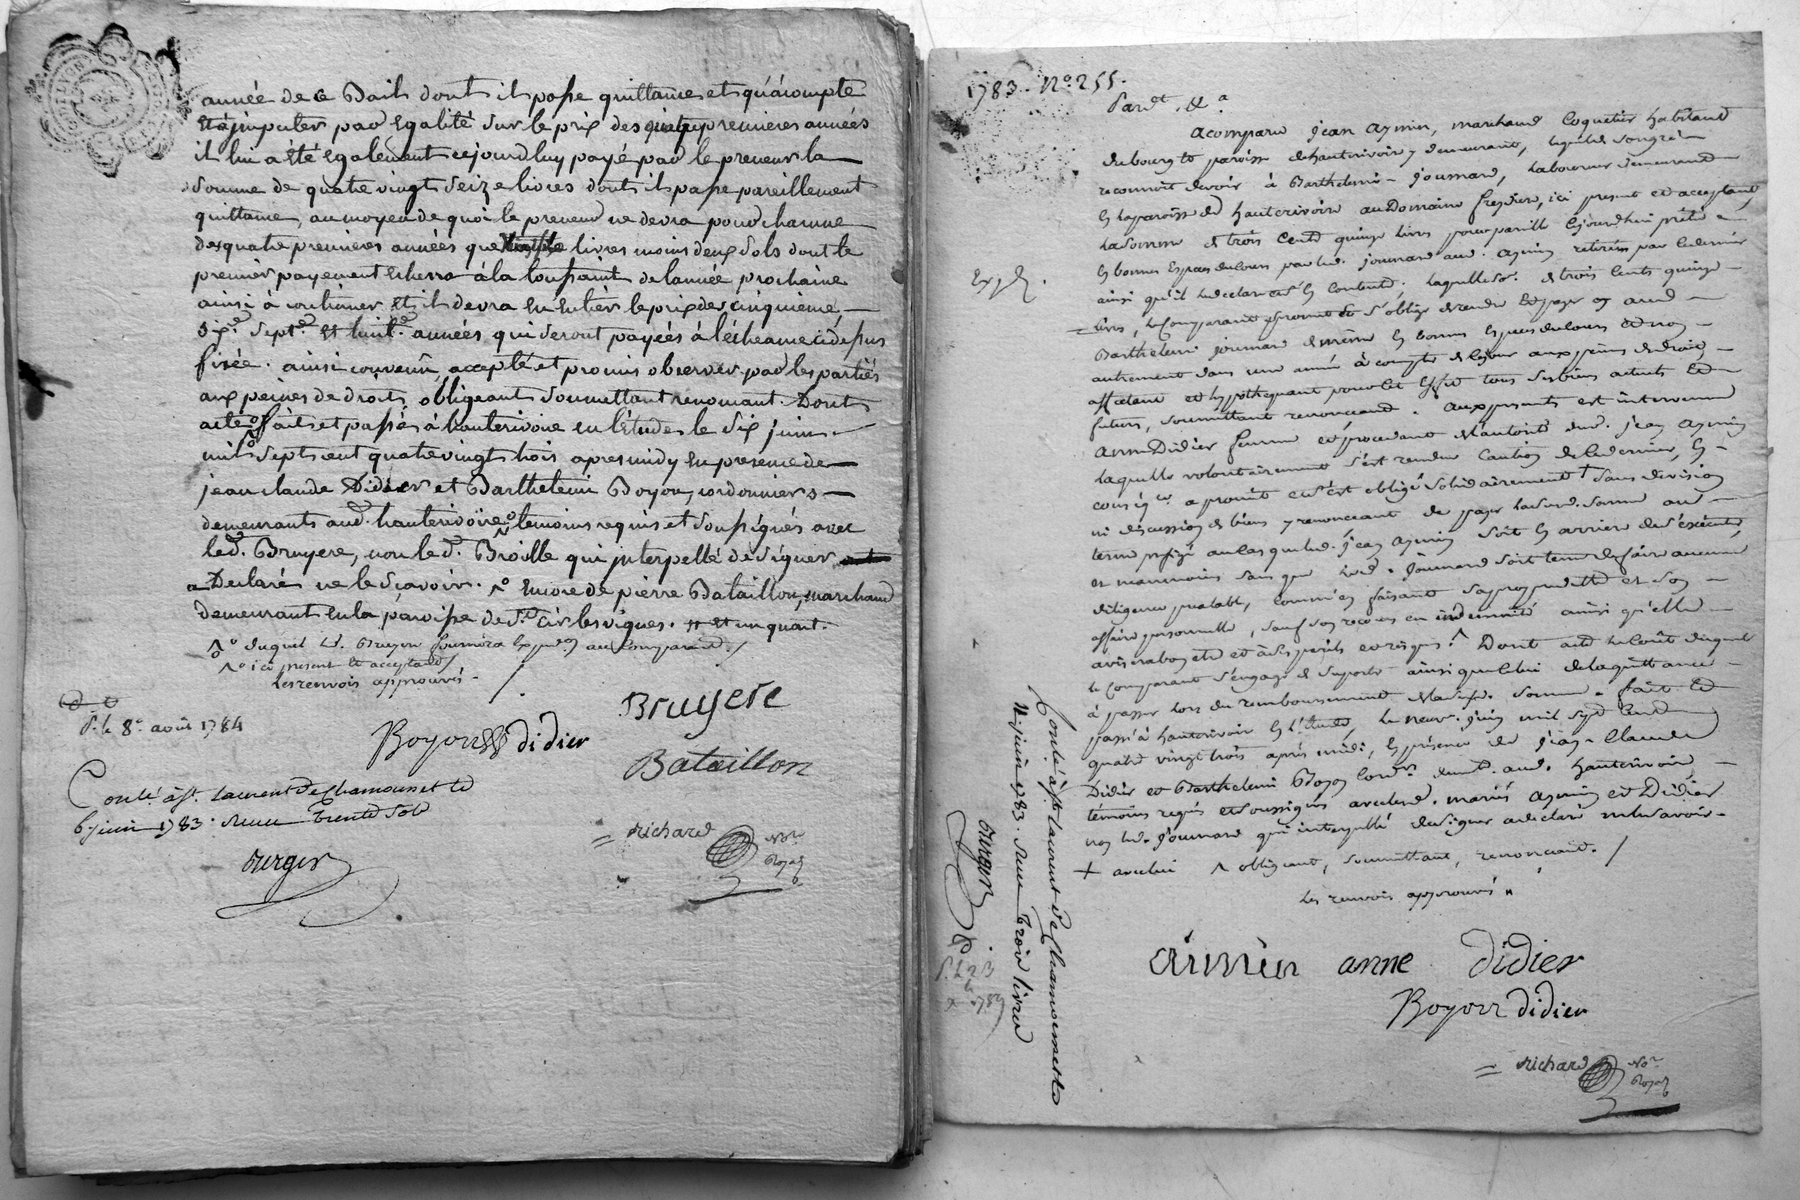 année de ce Bail dont il passe quittance et qu'acompte
et à imputer par egalité sur le prix des quatre premieres années
il lui a été egalement cejourdhuy payé par le preneur la
somme de quatre vingt seize livres dont il passe pareillement
quittance, au moyen de quoi le preneur ne devra pour chacune
des quatre premieres années que livres moins deux sols dont le
premier payement echerra à la toussaint de l'année prochaine
ainsi a continuer et il devra en entier le prix des cinquieme,
six.e sept.e et huit.e années qui seront payées à l'écheance ci dessus
fixée. ainsi convenu accepté et promis observer par les parties
aux peines de droit, obligeant soumettant renonçant Dont
acte fait et passé à hauterivoire en l'étude le six juin
mil sept cent quatre vingt trois apres midy en presence de
jean claude Didier et Barthelemi Boyon, cordonniers
demeurants aud. hauterivoire temoins requis et soussignés avec
led. Bruyere, non le d. Broille qui interpellé de signer
a Declaré ne le sçavoir. encore de pierre Bataillon, marchand
demeurant en la paroisse de S.t Cir les vignes. et un quart.
duquel led. Bruyere fournira exped.on au Comparant /
ici present et acceptant /
les renvois approuvés
d. le 8.e août 1784
Bruyere
Boyon didier
Bataillon
Con.lé à S.t Laurent De Chamousset le
6 juin 1783. Reçu trente sols
Burger
= Richard No.re Royal
1783. N.o 255.
Pard.t &.a
a comparu jean aymin, marchand Coquetier habitant
du bourg et paroisse de hauterivoire y demeurant, lequel de son gré
reconnoit devoir à Barthelemi Joumard, laboureur demeurant
en la paroisse de hauterivoire au Domaine, ici present et acceptant,
la somme de trois cent quinze livres pour pareille cejourd'hui prêté
en bonnes especes du cours par led. Joumard aud. aymin retirées par ce dernier
ainsi qu'il le declare et s'en contente. laquelle so.e de trois cents quinze
livres, le Comparant promet et s'oblige de rendre et payer aud.
Barthelemi Joumard de même en bonnes especes du cours et non
autrement dans une année à compter de ce jour aux peines de droit
affectant et hypothequant pour cet effet tous ses biens actuels et
futurs, soumettant renonceant. aux presentes est intervenue
anne Didier femme et procedant de l'autorité dud. jean aymin
laquelle volontairement s'est rendue caution de ce dernier, en
conseq.ce a promis et s'est obligée solidairement + sans division
ni discussion de biens y renonceant de payer lad. somme au
terme prefigé au cas que led. jean aymin soit en arriere de s'executer,
et neanmoins sans que led. Joumard soit tenu de faire aucune
diligence prealable, comme en faisant sa propre dette et son
affaire personnelle, sauf son recours en indemnité ainsi qu'elle
avisera bon etre et à ses perils et risques. ^ Dont acte le coût duquel
le Comparant s'engage de suporter ainsi que celui de la quittance
à passer lors du remboursement de lad. somme. fait et
passé à hauterivoire en l'étude, le neuf juin mil sept cent
quatre vingt trois après midi, en présence de Jean Claude
Didier et Barthelemi Boyon Cord.rs demeu.t aud. hauterivoire
témoins requis et soussignés avec lesd. mariés aymin et Didier
non led. Joumard qui interpellé de signer a declaré ne le savoir
+ avec lui ^ obligeant, soumettant, renonceant. /
les renvois approuvés
Exp.d
aimin anne didier
Boyon didier
= Richard No.re Royal
Con.lé à S.t Laurent de Chamousset le
11 juin 1783. Reçu trois livres
Burger